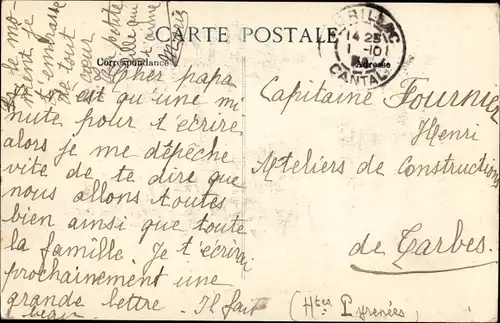 CARTE POSTALE
Correspondance
Adresse
AURILLAC
14 25
1 - 10
CANTAL
Cher papa
est qu'une mi
nute pour t'écrire
alors je me dépêche
vite de te dire que
nous allons toutes
bien ainsi que toute
la famille. Je t'écrirai
prochainement une
grande lettre. Il fait
beau.
le mo-
ment je
t'embrasse
de tout
cœur
ta petite
fille qui
t'aime
Capitaine Fournier
Henri
Ateliers de Construction
de Tarbes.
(Htes Pyrenées)